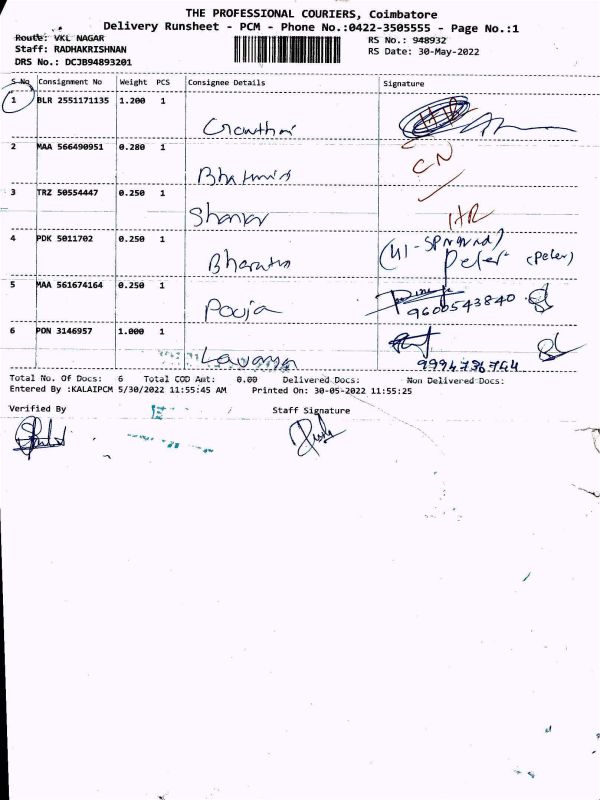 THE PROFESSIONAL COURIERS, Coimbatore
Delivery Runsheet - PCM - Phone No.:0422-3505555 - Page No.:1
Route: VKL NAGAR
RS No.: 948932
Staff: RADHAKRISHNAN
RS Date: 30-May-2022
DRS No.: DCJB94893201
S No Consignment No Weight PCS Consignee Details Signature
1 BLR 2551171135 1.200 1
2 MAA 566490951 0.280 1 CN
3 TRZ 50554447 0.250 1 Shankar HR
4 PDK 5011702 0.250 1 Peter (Peter)
5 MAA 561674164 0.250 1 Pooja 9600543840
6 PDN 3146957 1.000 1 Lavanya
Total No. Of Docs: 6 Total COD Amt: 0.00 Delivered Docs: Non Delivered Docs:
Entered By :KALAIPCM 5/30/2022 11:55:45 AM Printed On: 30-05-2022 11:55:25
Verified By Staff Signature